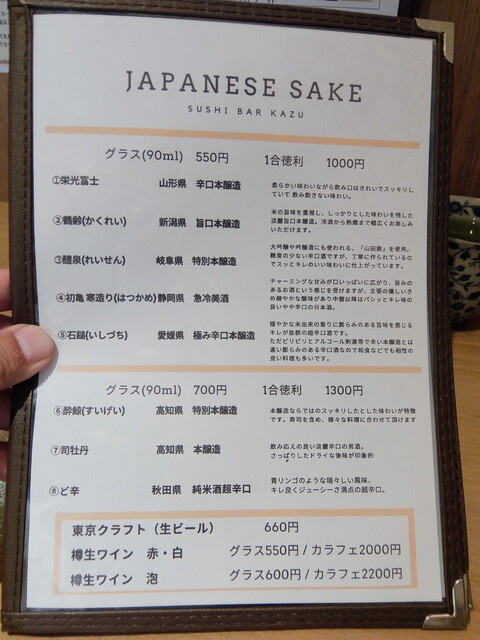 JAPANESE SAKE
SUSHI BAR KAZU
グラス(90ml) 550円 1合徳利 1000円
①栄光富士 山形県 辛口本醸造
柔らかい味わいながら飲み口はきれいでスッキリし
ていて 飲み飽きない味わい。
②鶴齢(かくれい) 新潟県 旨口本醸造
米の旨味を重視し、しっかりとした味わいを残した
淡麗旨口本醸造。冷酒から熱燗まで幅広くお楽しみ
いただけます。
③醴泉(れいせん) 岐阜県 特別本醸造
大吟醸や吟醸酒にも使われる、「山田錦」を使用。
糖度の少ない辛口酒ですが、丁寧に作られているの
でスッとキレのいい味わいに仕上がっています。
④初亀 寒造り(はつかめ) 静岡県 急冷美酒
チャーミングな甘みが口いっぱいに広がり、旨みの
あるお酒という感じを受けますが、主張の優しいき
め細やかな酸味があり中盤以降はパシッとキレ味の
良いやや辛口の日本酒。
⑤石鎚(いしづち) 愛媛県 極み辛口本醸造
穏やかな米由来の香りに膨らみのある旨味を感じる
キレが抜群の超辛口酒です。
ただピリピリとアルコール刺激等で辛い本醸造とは
違い膨らみのある辛口酒なので和食などでも相性の
良い料理も多いです。
グラス(90ml) 700円 1合徳利 1300円
⑥酔鯨(すいげい) 高知県 特別本醸造
本醸造ならではのスッキリしたとした味わいが特徴
です。寿司を含め、様々な料理に合わせて頂けます
⑦司牡丹 高知県 本醸造
飲み応えの良い淡麗辛口の男酒。
さっぱりしたドライな後味が印象的
⑧ど辛 秋田県 純米酒超辛口
青リンゴのような瑞々しい風味、
キレ良くジューシーさ満点の超辛口。
東京クラフト（生ビール） 660円
樽生ワイン 赤・白 グラス550円 / カラフェ2000円
樽生ワイン 泡 グラス600円 / カラフェ2200円